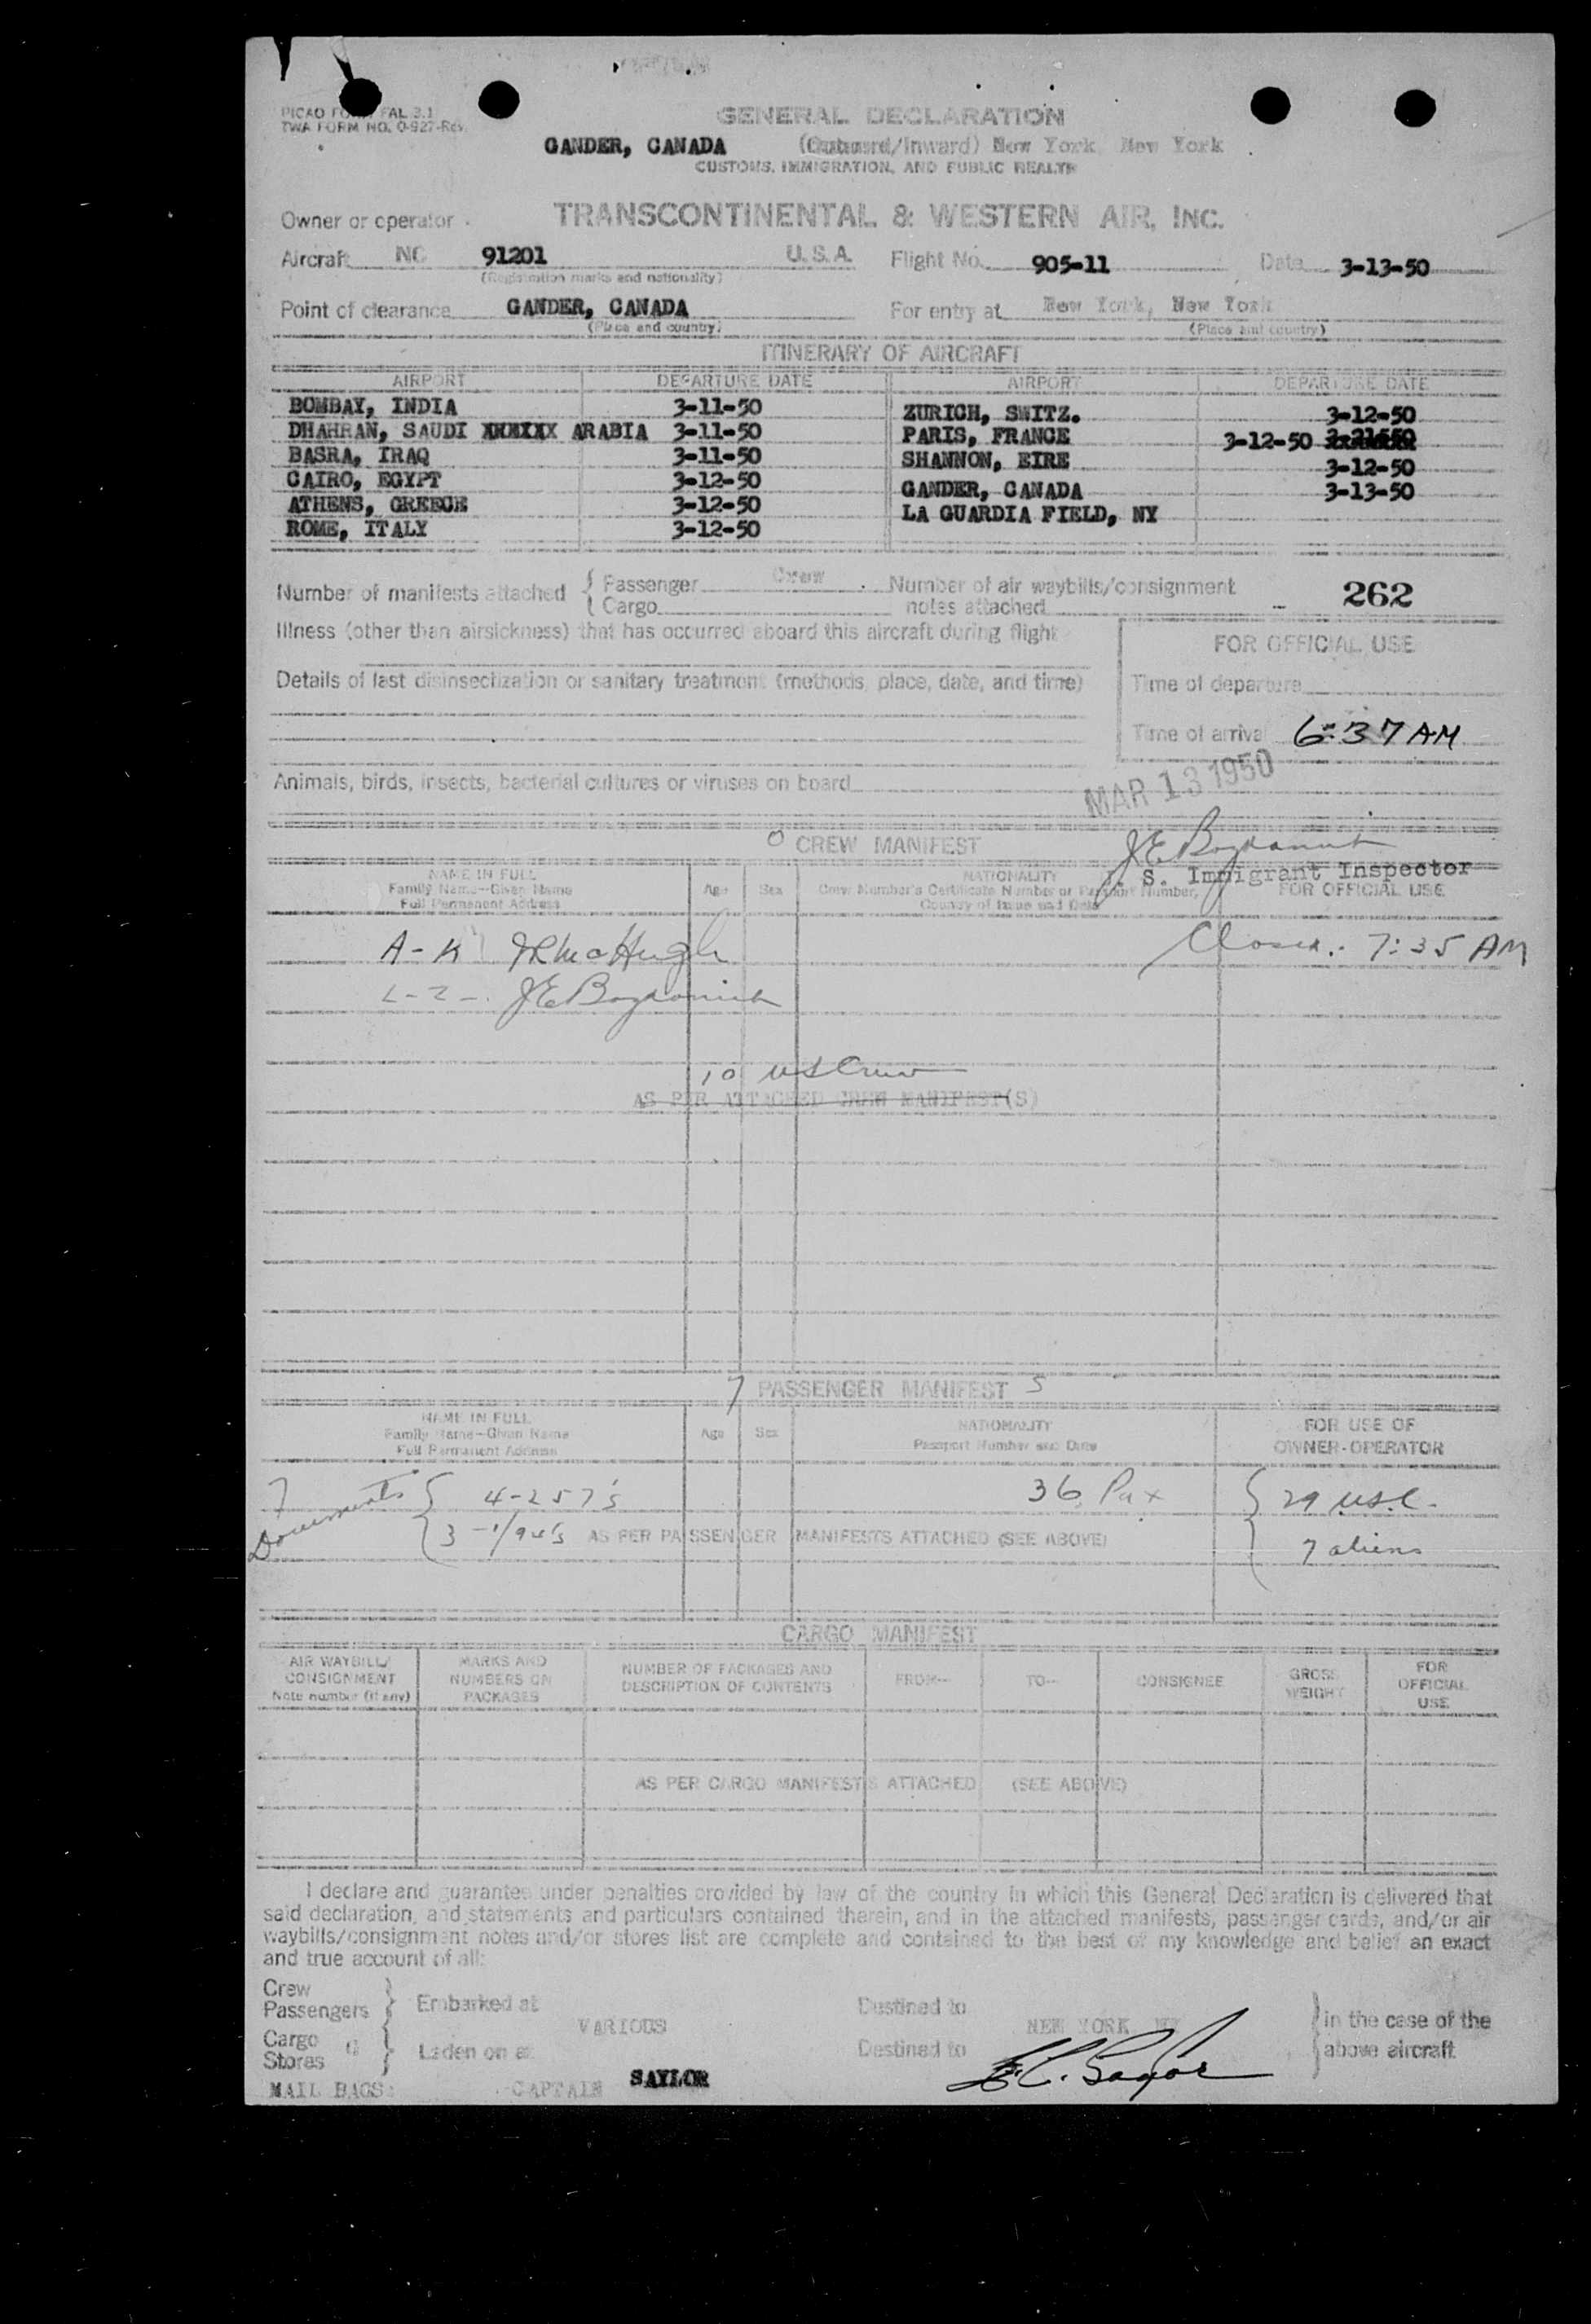 PICAO FORM FAL 3.1
TWA FORM NO. O-927-Rev.
GENERAL DECLARATION
GANDER, CANADA (Outward/Inward) New York, New York
CUSTOMS, IMMIGRATION, AND PUBLIC HEALTH
Owner or operator TRANSCONTINENTAL & WESTERN AIR, INC.
Aircraft NC 91201 U.S.A. Flight No. 905-11 Date 3-13-50
(Registration marks and nationality)
Point of clearance GANDER, CANADA For entry at New York, New York
(Place and country) (Place and country)
ITINERARY OF AIRCRAFT
AIRPORT DEPARTURE DATE AIRPORT DEPARTURE DATE
BOMBAY, INDIA 3-11-50 ZURICH, SWITZ. 3-12-50
DHAHRAN, SAUDI ARABIA 3-11-50 PARIS, FRANCE 3-12-50
BASRA, IRAQ 3-11-50 SHANNON, EIRE 3-12-50
CAIRO, EGYPT 3-12-50 GANDER, CANADA 3-13-50
ATHENS, GREECE 3-12-50 LA GUARDIA FIELD, NY
ROME, ITALY 3-12-50
Number of manifests attached { Passenger Crew Number of air waybills/consignment 262
Cargo notes attached
Illness (other than airsickness) that has occurred aboard this aircraft during flight
FOR OFFICIAL USE
Details of last disinsectization or sanitary treatment (methods, place, date, and time)
Time of departure
Time of arrival 6:37 AM
MAR 13 1950
Animals, birds, insects, bacterial cultures or viruses on board
0 CREW MANIFEST
U. S. Immigrant Inspector
NAME IN FULL
Family Name—Given Name
Full Permanent Address
Age Sex
NATIONALITY
Crew Member's Certificate Number or Passport Number,
Country of Issue and Date
FOR OFFICIAL USE
A-K JR McHugh Closed: 7:35 AM
L-Z -
10 US Crew
AS PER ATTACHED CREW MANIFEST(S)
7 PASSENGER MANIFEST S
NAME IN FULL
Family Name—Given Name
Full Permanent Address
Age Sex
NATIONALITY
Passport Number and Date
FOR USE OF
OWNER-OPERATOR
7 Documents { 4-257's 36 Pax { 29 USC.
3 - 1/94's AS PER PASSENGER MANIFESTS ATTACHED (SEE ABOVE)
7 aliens
CARGO MANIFEST
AIR WAYBILL/
CONSIGNMENT
Note number (if any)
MARKS AND
NUMBERS ON
PACKAGES
NUMBER OF PACKAGES AND
DESCRIPTION OF CONTENTS
FROM— TO— CONSIGNEE
GROSS
WEIGHT
FOR
OFFICIAL
USE
AS PER CARGO MANIFESTS ATTACHED (SEE ABOVE)
I declare and guarantee under penalties provided by law of the country in which this General Declaration is delivered that
said declaration, and statements and particulars contained therein, and in the attached manifests, passenger cards, and/or air
waybills/consignment notes and/or stores list are complete and contained to the best of my knowledge and belief an exact
and true account of all:
Crew
Passengers } Embarked at Destined to
VARIOUS NEW YORK, NY } in the case of the
Cargo
Stores } Laden on at Destined to above aircraft
MAIL BAGS: CAPTAIN SAYLOR